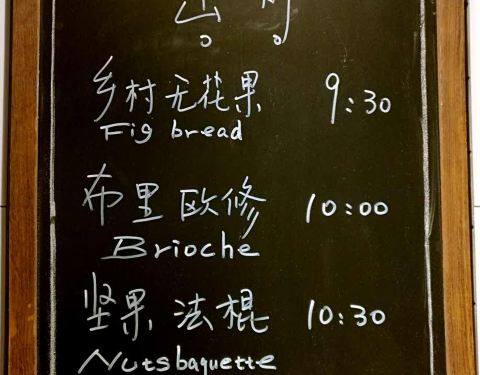 乡村无花果 9:30
Fig bread
布里欧修 10:00
Brioche
坚果法棍 10:30
Nutsbaguette